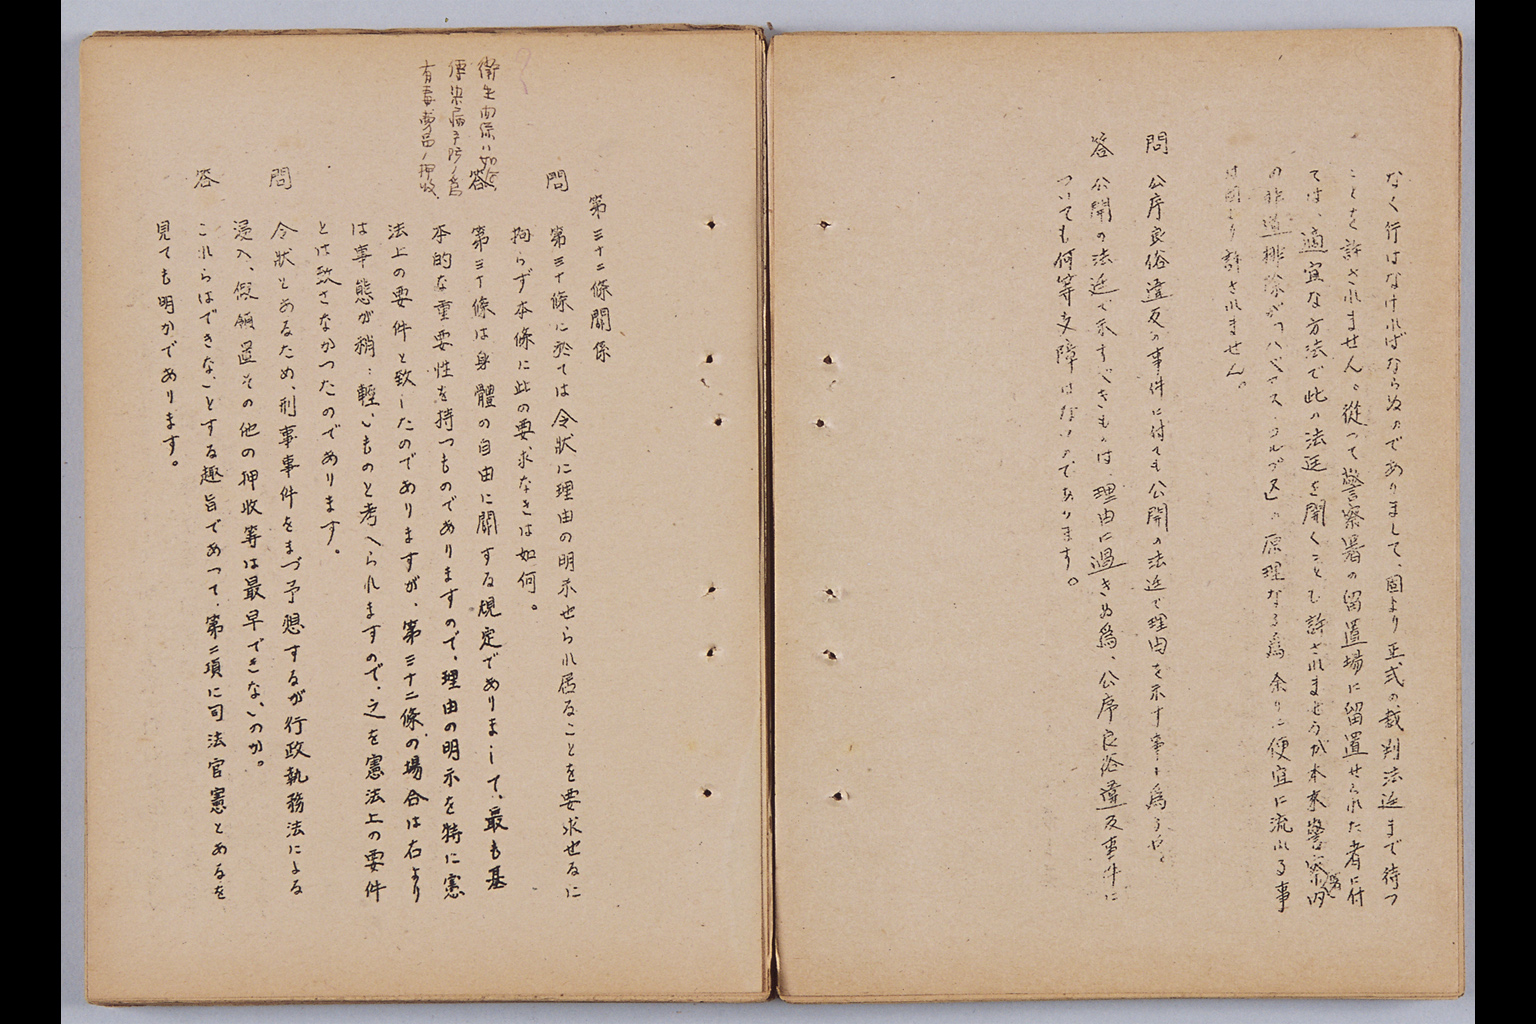 なく行はなければならぬのでありまして、固より正式の裁判法廷まで待つ
ことを許されません。従つて警察署の留置場に留置せられた者に付
ては、適宜な方法で此の法廷を開くことも許されませうが本来警察内
の非違排除がハベアス、コルプスの原理なる為余りに便宜に流れる事
は固より許されません。
問 公序良俗違反の事件に付ても公開の法廷で理由を示す事と為るか。
答 公開の法廷で示すべきものは、理由に過きぬ為、公序良俗違反事件に
ついても何等支障はないのであります。
第三十二條關係
問 第三十條に於ては令状に理由の明示せられ居ることを要求せるに
拘らず本條に此の要求なきは如何。
答 第三十條は身體の自由に關する規定でありまして、最も基
本的な重要性を持つものでありますので、理由の明示を特に憲
法上の要件と致したのでありますが、第三十二條の場合は右より
は事態が稍〻輕いものと考へられますので、之を憲法上の要件
とは致さなかつたのであります。
問 令狀とあるため、刑事事件をまづ予想するが行政執務法による
浸入、假領置その他の押收等は最早できないのか。
答 これらはできないとする趣旨であつて、第二項に司法官憲とあるを
見ても明かであります。
衛生関係ハ如何
傳染病予防ノ為
有毒藥品ノ押收